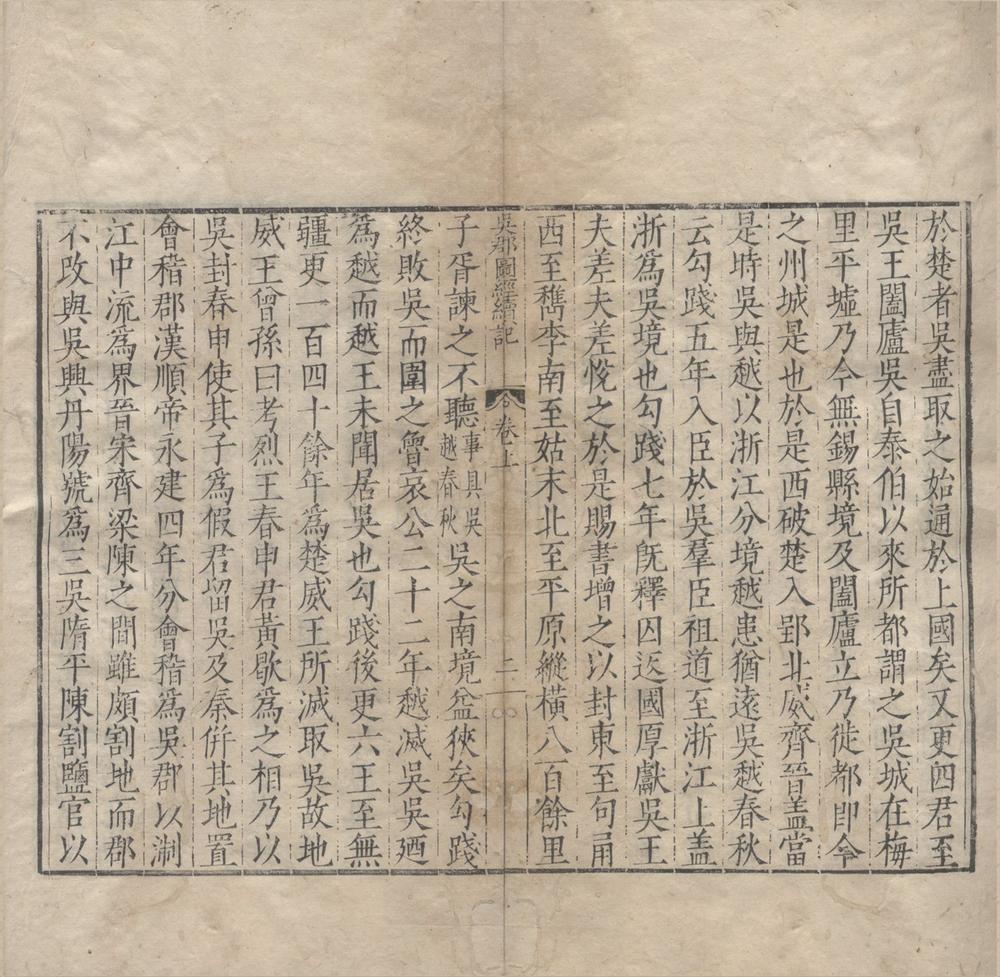 於楚者吳盡取之始通於上國矣又更四君至
吳王闔廬吳自泰伯以來所都謂之吳城在梅
里平墟乃今無錫縣境及闔廬立乃徙都即今
之州城是也於是西破楚入郢北威齊晉盖當
是時吳與越以浙江分境越患猶遠吳越春秋
云勾踐五年入臣於吳羣臣祖道至浙江上盖
浙爲吳境也勾踐七年旣釋囚返國厚獻吳王
夫差夫差恱之於是賜書增之以封東至句甬
西至檇李南至姑末北至平原縱橫八百餘里
吳郡圖經續記 卷上 二
子胥諫之不聽事具吳越春秋吳之南境益狹矣勾踐
終敗吳而圍之魯哀公二十二年越滅吳吳廼
爲越而越王未聞居吳也勾踐後更六王至無
疆更一百四十餘年爲楚威王所滅取吳故地
威王曾孫曰考烈王春申君黃歇爲之相乃以
吳封春申使其子爲假君留吳及秦倂其地置
會稽郡漢順帝永建四年分會稽爲吳郡以淛
江中流爲界晉宋齊梁陳之間雖頗割地而郡
不改與吳興丹陽號爲三吳隋平陳割鹽官以